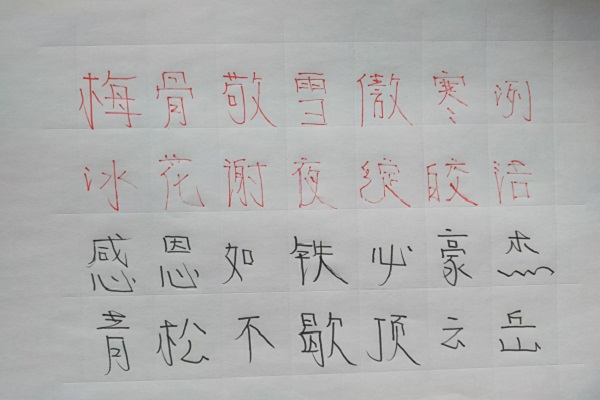 梅骨敬雪傲寒冽
冰花谢夜绽皎洁
感恩如铁必豪杰
青松不歇顶云岳